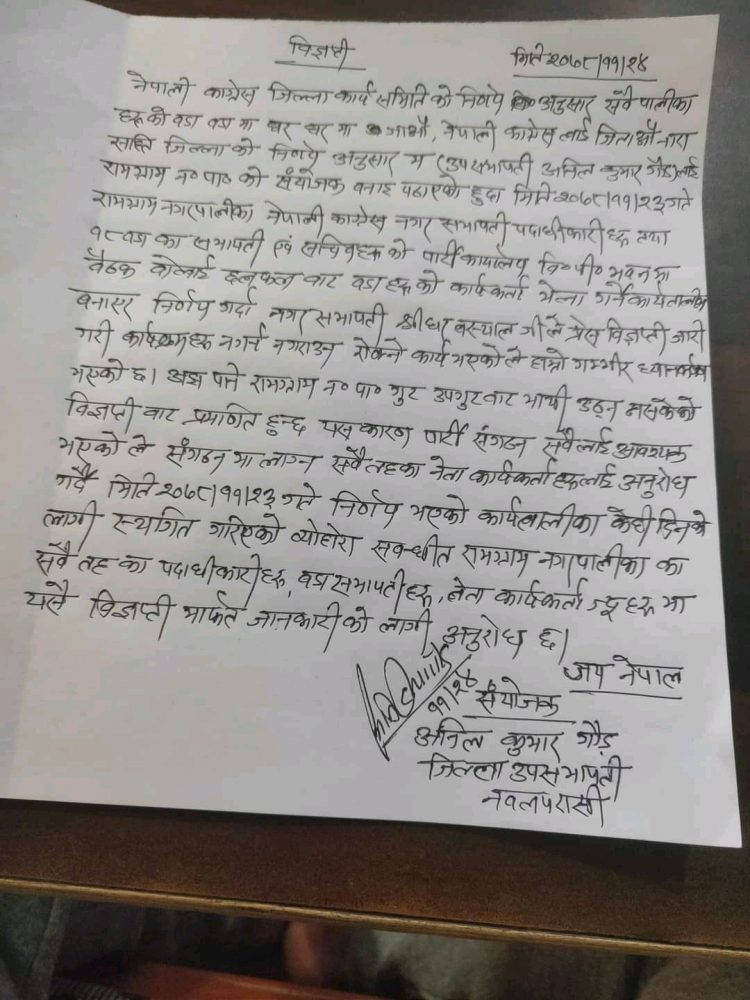 विज्ञप्ती
मिति २०७८/११/२४
नेपाली काग्रेस जिल्ला कार्य समिति को निर्णय अनुसार सबै पालीका
हरू को वडा वडा मा घर घर मा जाऔ, नेपाली काग्रेस लाई जिताऔ नारा
सहित जिल्ला को निर्णय अनुसार म (उपसभापती अनिल कुमार गौड) लाई
रामग्राम न० पा० को संयोजक बनाइ पठाएको हुदा मिति २०७८/११/२३ गते
रामग्राम नगरपालीका नेपाली काग्रेस नगर सभापती पदाधीकारी हरू तथा
१८ वडा का सभापती एवं सचिवहरू को पार्टी कार्यालय वि० पी० भवन मा
बैठक बोलाई छलफल बाट वडा हरू को कार्यकर्ता भेला गर्ने कार्यतालीका
बनाएर निर्णय गर्दा नगर सभापती श्रीधर बस्याल जी ले प्रेस विज्ञप्ती जारी
गरी कार्यक्रम हरू नगर्न नगराउन रोक्ने कार्य भएको ले हाम्रो गम्भीर ध्यानाकर्षण
भएको छ। अझ पनि रामग्राम न० पा० गुट उपगुट बाट माथी उठ्न नसकेको
विज्ञप्ती बाट प्रमाणित हुन्छ यस कारण पार्टी संगठन सबैलाई आवश्यक
भएको ले संगठन मा लाग्न सबै तहका नेता कार्यकर्ता हरूलाई अनुरोध
गर्दै मिति २०७८/११/२३ गते निर्णय भएको कार्यतालीका केही दिनको
लागी स्थगित गरिएको व्योहोरा सबन्धीत रामग्राम नगरपालीका का
सबै तह का पदाधीकारी हरू, वडा सभापती हरू, नेता कार्यकर्ता ज्यू हरू मा
यसै विज्ञप्ती मार्फत जानकारी को लागी अनुरोध छ।
जय नेपाल
११/२४
संयोजक
अनिल कुमार गौड
जिल्ला उपसभापती
नवलपरासी